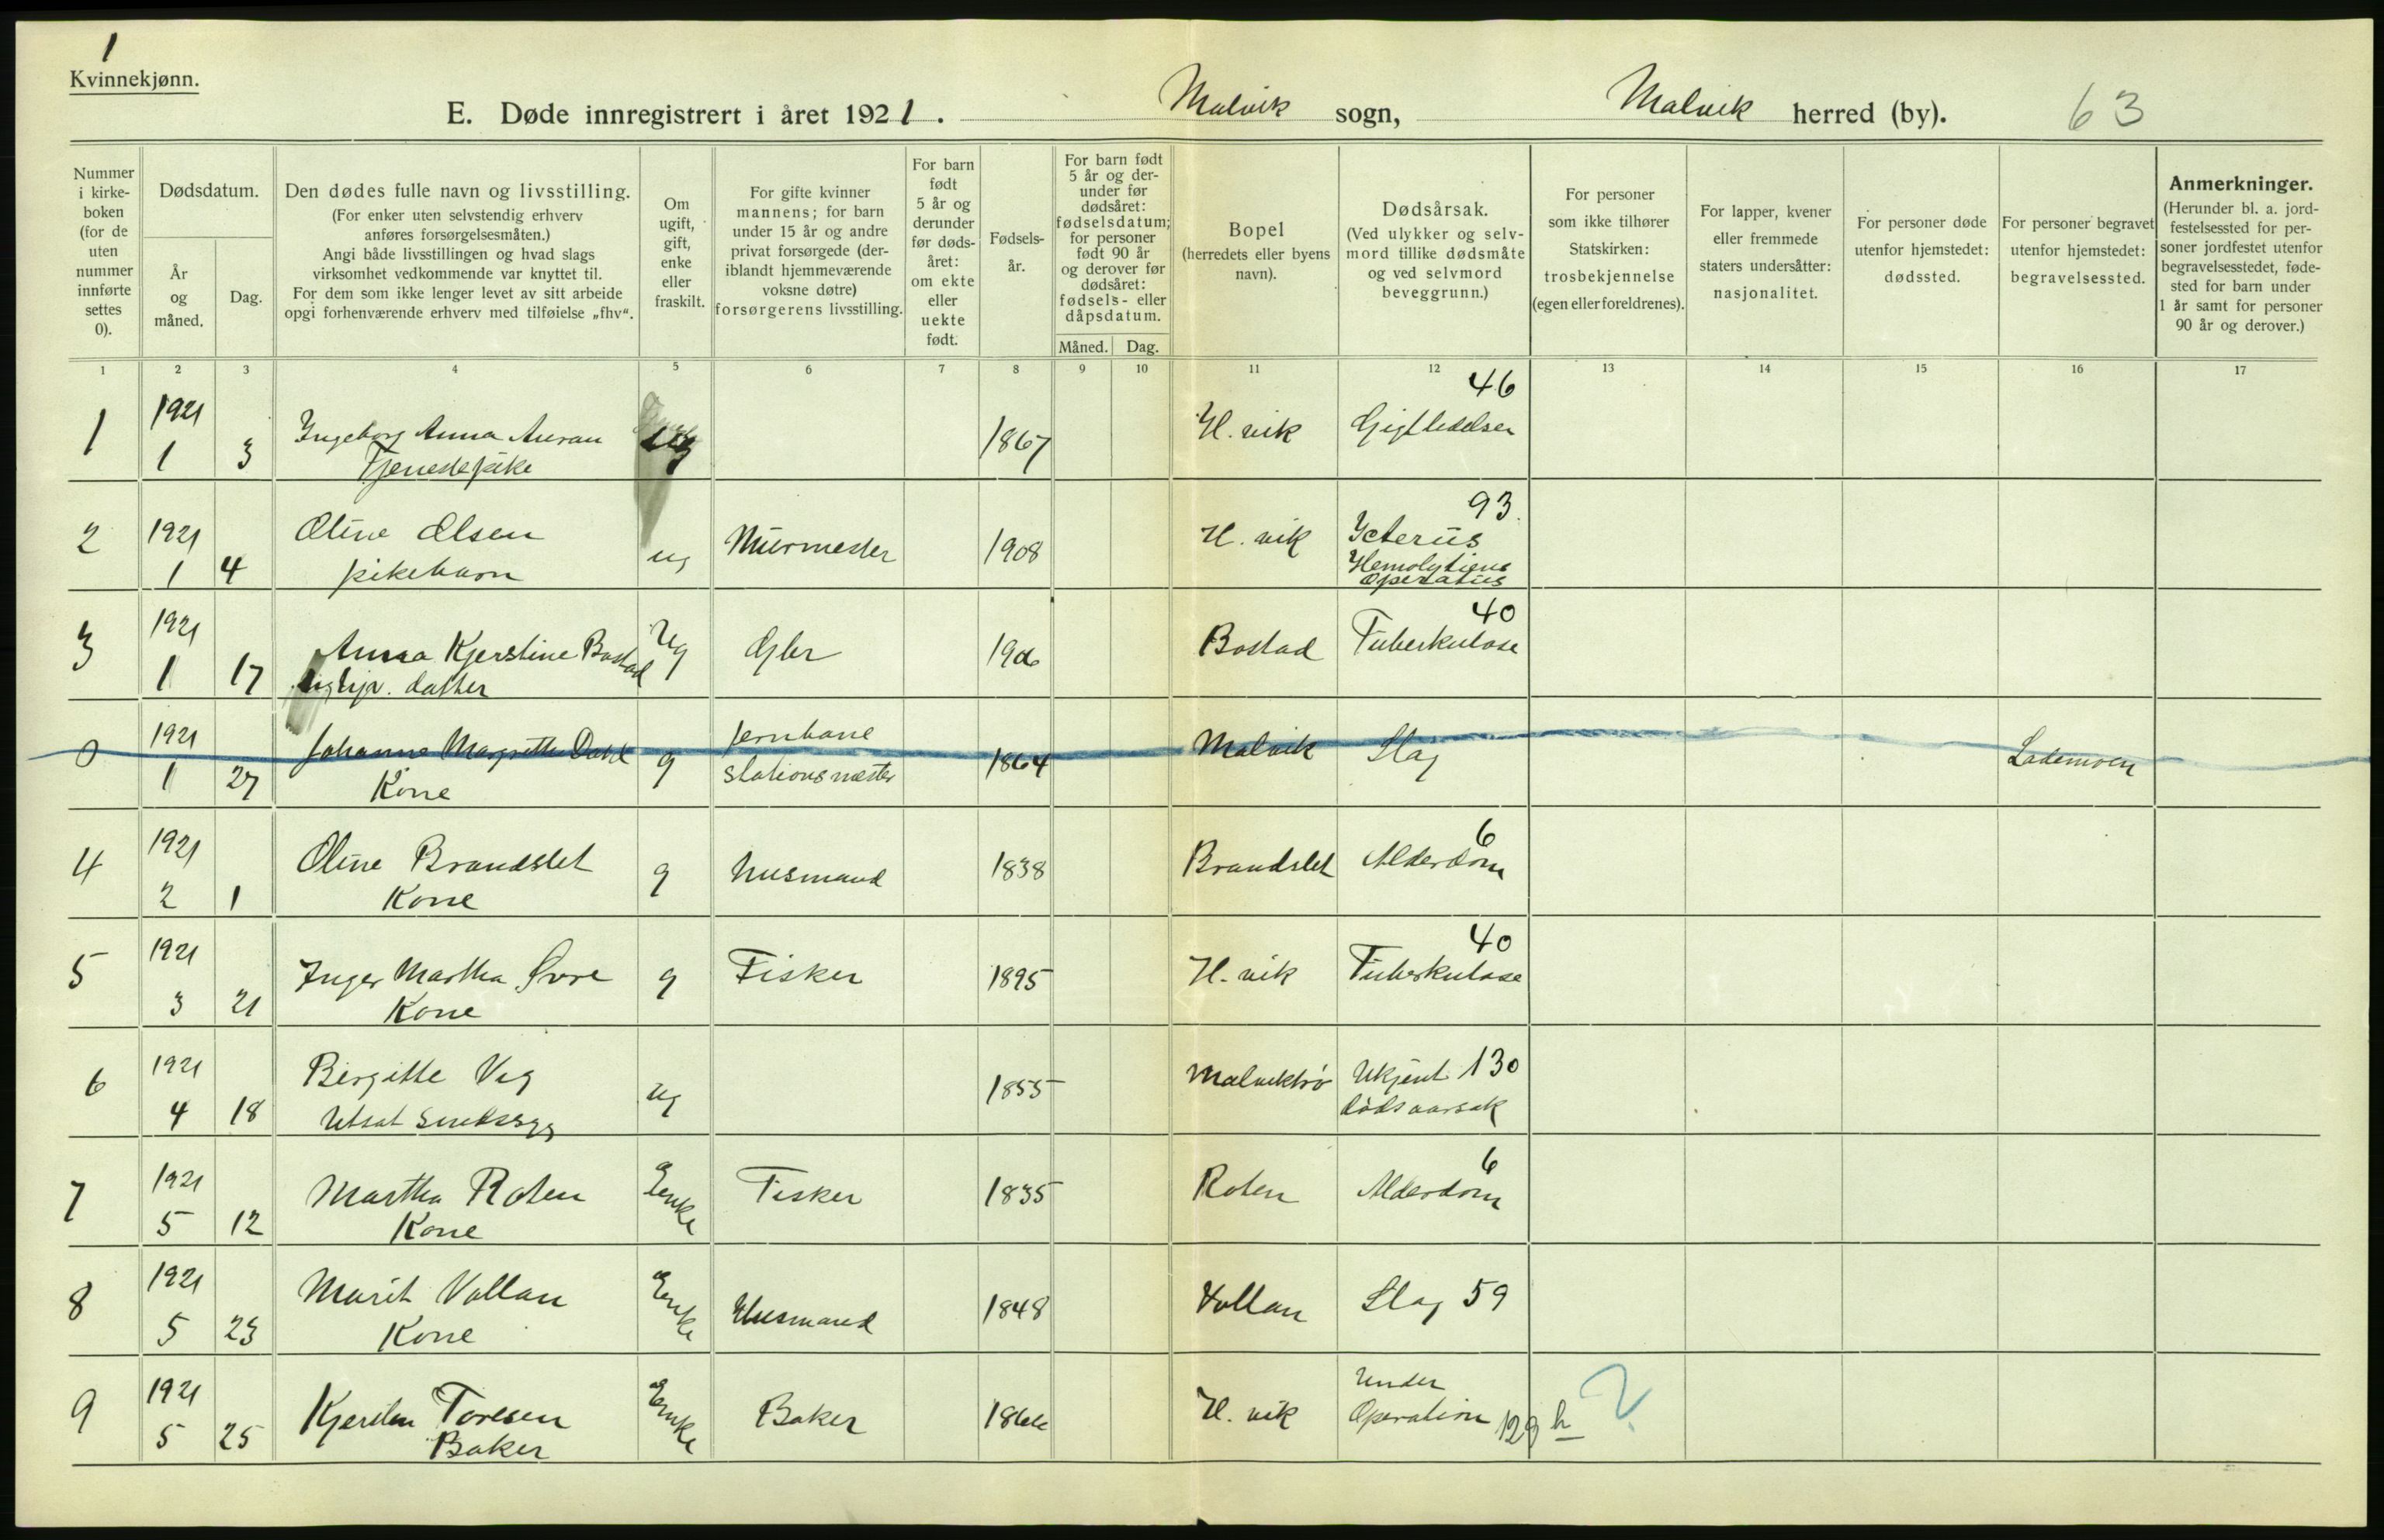 1
Kvinnekjønn.
E. Døde innregistrert i året 1921. Malvik sogn, Malvik herred (by). 63
Nummer i kirke- boken (for de uten nummer innførte settes 0).
Dødsdatum.
År og måned.
Dag.
Den dødes fulle navn og livsstilling.
(For enker uten selvstendig erhverv
anføres forsørgelsesmåten.)
Angi både livsstillingen og hvad slags
virksomhet vedkommende var knyttet til.
For dem som ikke lenger levet av sitt arbeide
opgi forhenværende erhverv med tilføielse „fhv“.
Om ugift, gift, enke eller fraskilt.
For gifte kvinner
mannens; for barn
under 15 år og andre
privat forsørgede (der-
iblandt hjemmeværende
voksne døtre)
forsørgerens livsstilling.
For barn født 5 år og derunder før døds- året: om ekte eller uekte født.
Fødsels- år.
For barn født
5 år og der-
under før
dødsåret:
fødselsdatum;
for personer
født 90 år
og derover før
dødsåret:
fødsels- eller
dåpsdatum.
Måned. Dag.
Bopel
(herredets eller byens
navn).
Dødsårsak.
(Ved ulykker og selv-
mord tillike dødsmåte
og ved selvmord
beveggrunn.)
For personer
som ikke tilhører
Statskirken:
trosbekjennelse
(egen eller foreldrenes).
For lapper, kvener
eller fremmede
staters undersåtter:
nasjonalitet.
For personer døde
utenfor hjemstedet:
dødssted.
For personer begravet
utenfor hjemstedet:
begravelsessted.
Anmerkninger.
(Herunder bl. a. jord-
festelsessted for per-
soner jordfestet utenfor
begravelsesstedet, føde-
sted for barn under
1 år samt for personer
90 år og derover.)
1 2 3 4 5 6 7 8 9 10 11 12 13 14 15 16 17
1 1921 1 3 Ingeborg Anna Auran ug 1867 H. vik Gigtlidelser 46
Tjenestepike
2 1921 1 4 Oline Olsen ug Murmester 1908 H. vik Icterus 93
pikebarn Hemolyticus
Operatus
3 1921 1 17 Anna Kjerstine Bostad Ug Gbr 1906 Bostad Tuberkulose 40
datter
0 1921 1 27 Johanne Margrethe g Jernbane 1864 Malvik Slag Lademoen
Kone stationsmester
4 1921 2 1 Oline Brandslet g Husmand 1838 Brandslet Alderdom 6
Kone
5 1921 3 21 Inger Martha g Fisker 1895 H. vik Tuberkulose 40
Kone
6 1921 4 18 Birgitte ug 1855 Ukjent 130
Utsat sindssyg dødsaarsak
7 1921 5 12 Martha Roten Enke Fisker 1835 Roten Alderdom 6
Kone
8 1921 5 23 Marit Vollan Enke Husmand 1848 Vollan Slag 59
Kone
9 1921 5 25 Toresen Enke Baker 1866 H. vik Under
Baker Operation 129 h ?